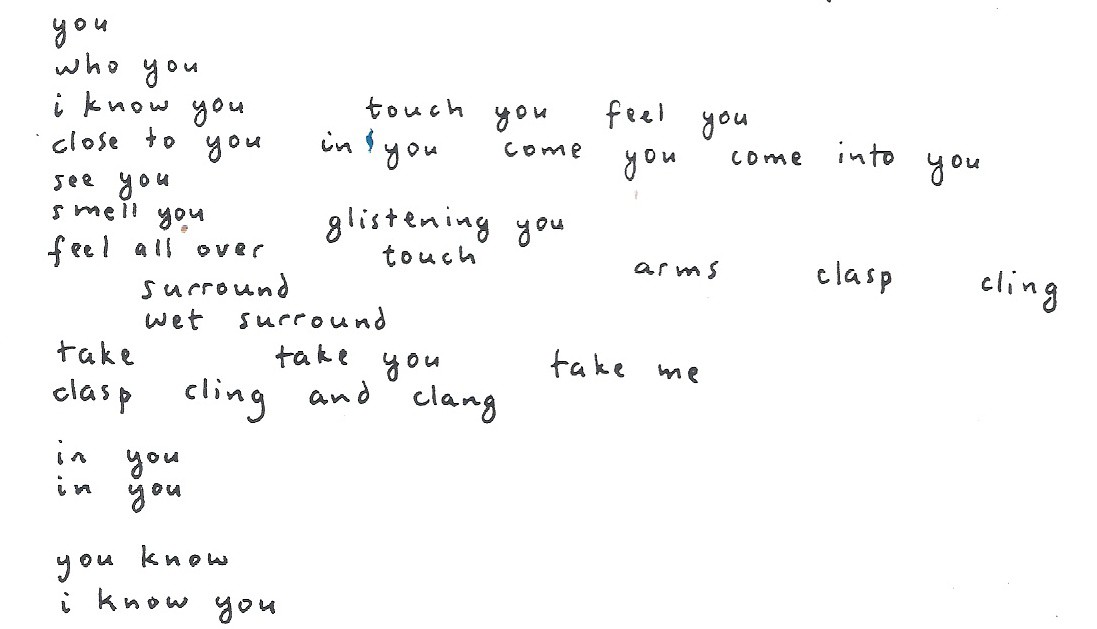 you
who you
i know you touch you feel you
close to you in you come you come into you
see you
smell you glistening you
feel all over touch arms clasp cling
surround
wet surround
take take you take me
clasp cling and clang
in you
in you
you know
i know you